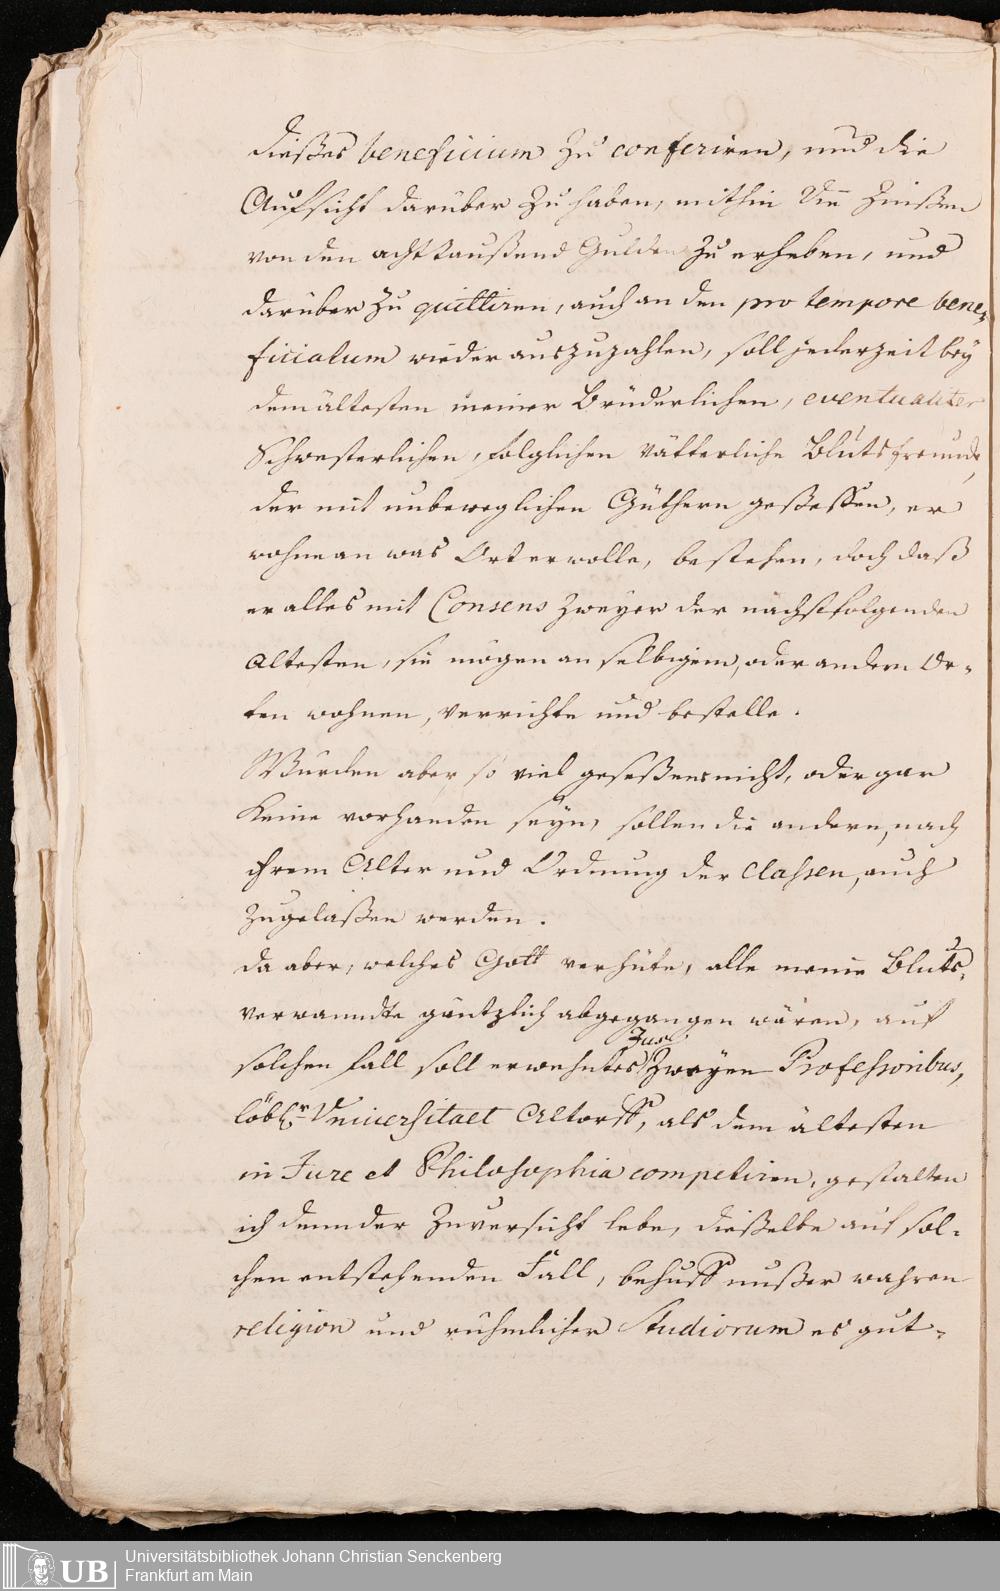 dießes beneficium zu conferiren, und die
Aufsicht darüber zu haben, mithin die Zinßen
von den acht taußend Gulden zu erheben, und
darüber zu quittiren, auch an den pro tempore bene-
ficiatum wieder auszuzahlen, soll jederzeit bey
dem ältesten meiner Brüderlichen, eventualiter
Schwesterlichen, folglichen vätterliche Blutsfreunde,
der mit unbeweglichen Güthern geßessen, er
wohne an was Ort er wolle, bestehen, doch daß
er alles mit Consens zweyer der nächstfolgenden
Altesten, sie mögen an selbigem, oder andern Or-
ten wohnen, verrichte und bestelle.
Würden aber so viel geseßener nicht, oder gar
keine vorhanden seyn, sollen die andern, nach
ihrem Alter und Ordnung der Classen, auch
zugelaßen werden.
da aber, welches Gott verhüte, alle meine Bluts-
verwanndte gäntzlich abgegangen wären, auf
solchen fall soll erwehntes Jus zweyen Professoribus,
löbl. Universitaet Altorff, als dem ältesten
in Jure et Philosophia competiren, gestalten
ich denn der Zuversicht lebe, dießelbe auf sol-
chen entstehenden Fall, behuff unßer wahren
religion und rühmlicher Studiorum es gut-
Universitätsbibliothek Johann Christian Senckenberg
Frankfurt am Main
UB